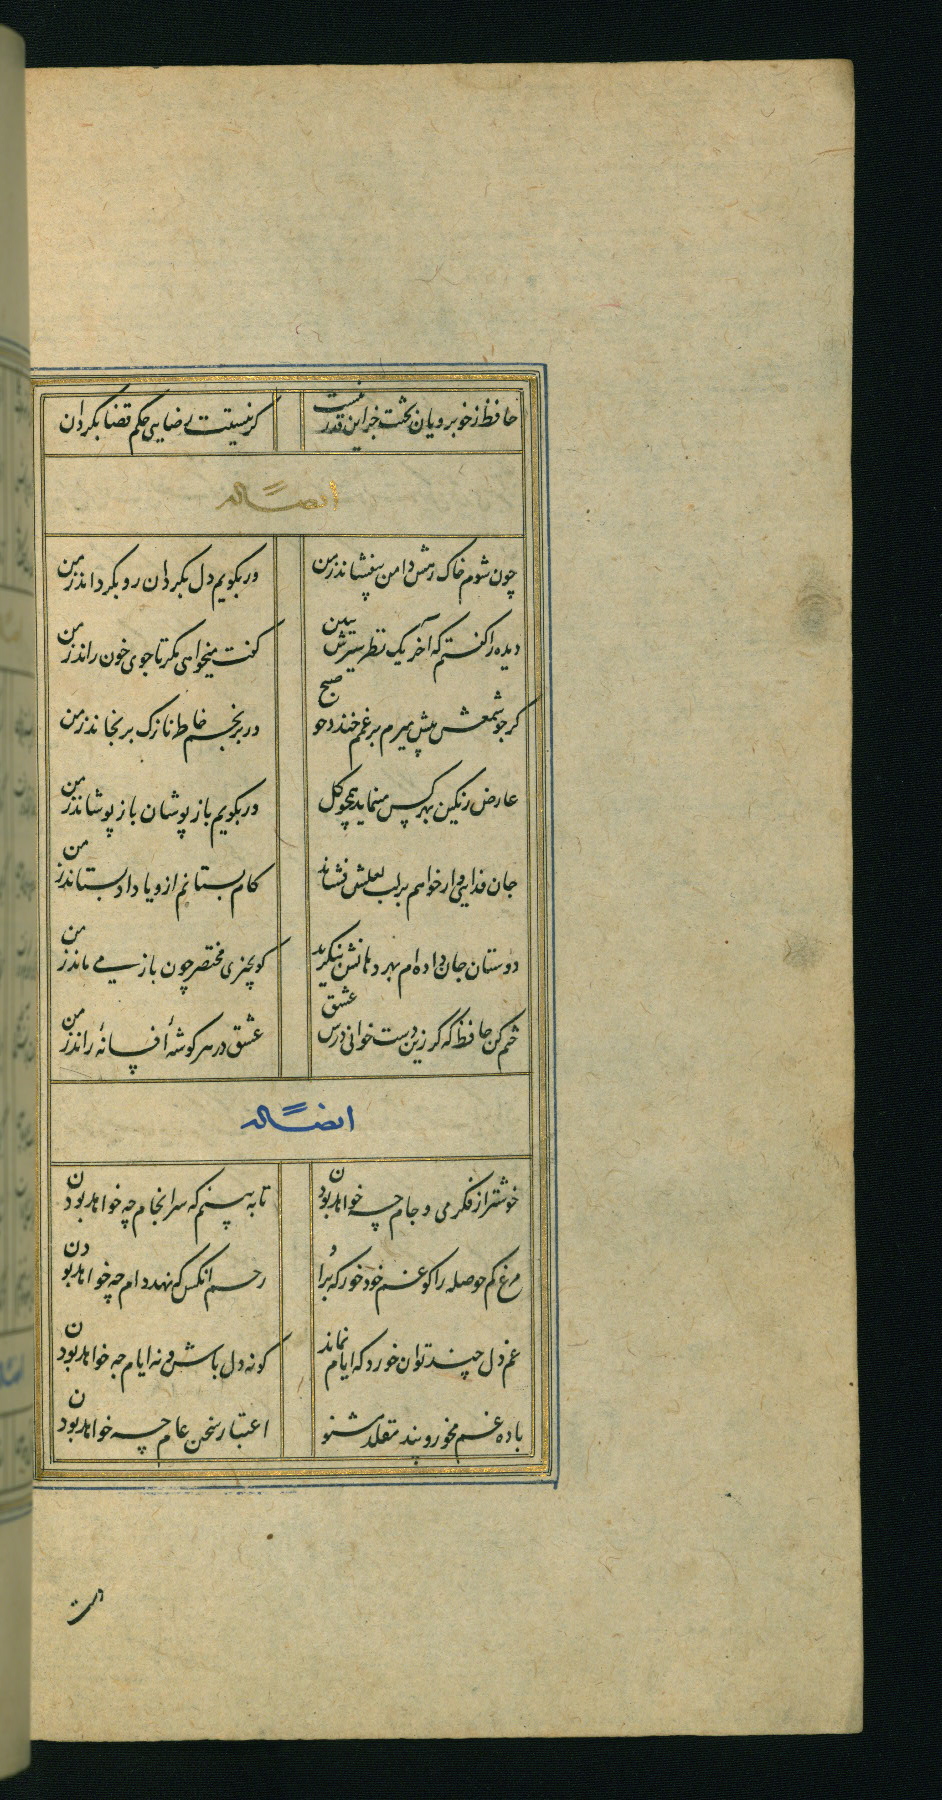 حافظ ز خوبرویان بختت جز این قدر نیست
کر نیستت رضایی حکم قضا بکردان
ایضاً له
چون شوم خاک رهش دامن بیفشاند ز من
ور بکویم دل بکردان رو بکرداند ز من
دیده را کفتم که آخر یک نظر سیرش ببین
کفت میخواهی مکر تا جوی خون راند ز من
کر چو شمعش پیش میرم بر غم خندد چو صبح
ور برنجم خاطر نازک برنجاند ز من
عارض رنکین بهر کس مینماید همچو کل
ور بکویم باز پوشان باز پوشاند ز من
کام بستانم ازو یا داد بستاند ز من
دوستان جان داده‌ام بهر دهانش بنکرید
کو بچیزی مختصر چون باز می ماند ز من
ختم کن حافظ که کر زین دست خوانی درس عشق
عشق در هر کوشهٔ افسانهٔ راند ز من
ایضاً له
خوشتر از فکر می و جام چه خواهد بودن
تا به بینم که سرانجام چه خواهد بودن
مرغ کم حوصله را کو غم خود خور که برو
رحم انکس که نهد دام چه خواهد بودن
غم دل چند توان خورد که ایام نماند
کو نه دل باش و نه ایام چه خواهد بودن
باده غم مخور و پند مقلد مشنو
اعتبار سخن عام چه خواهد بودن